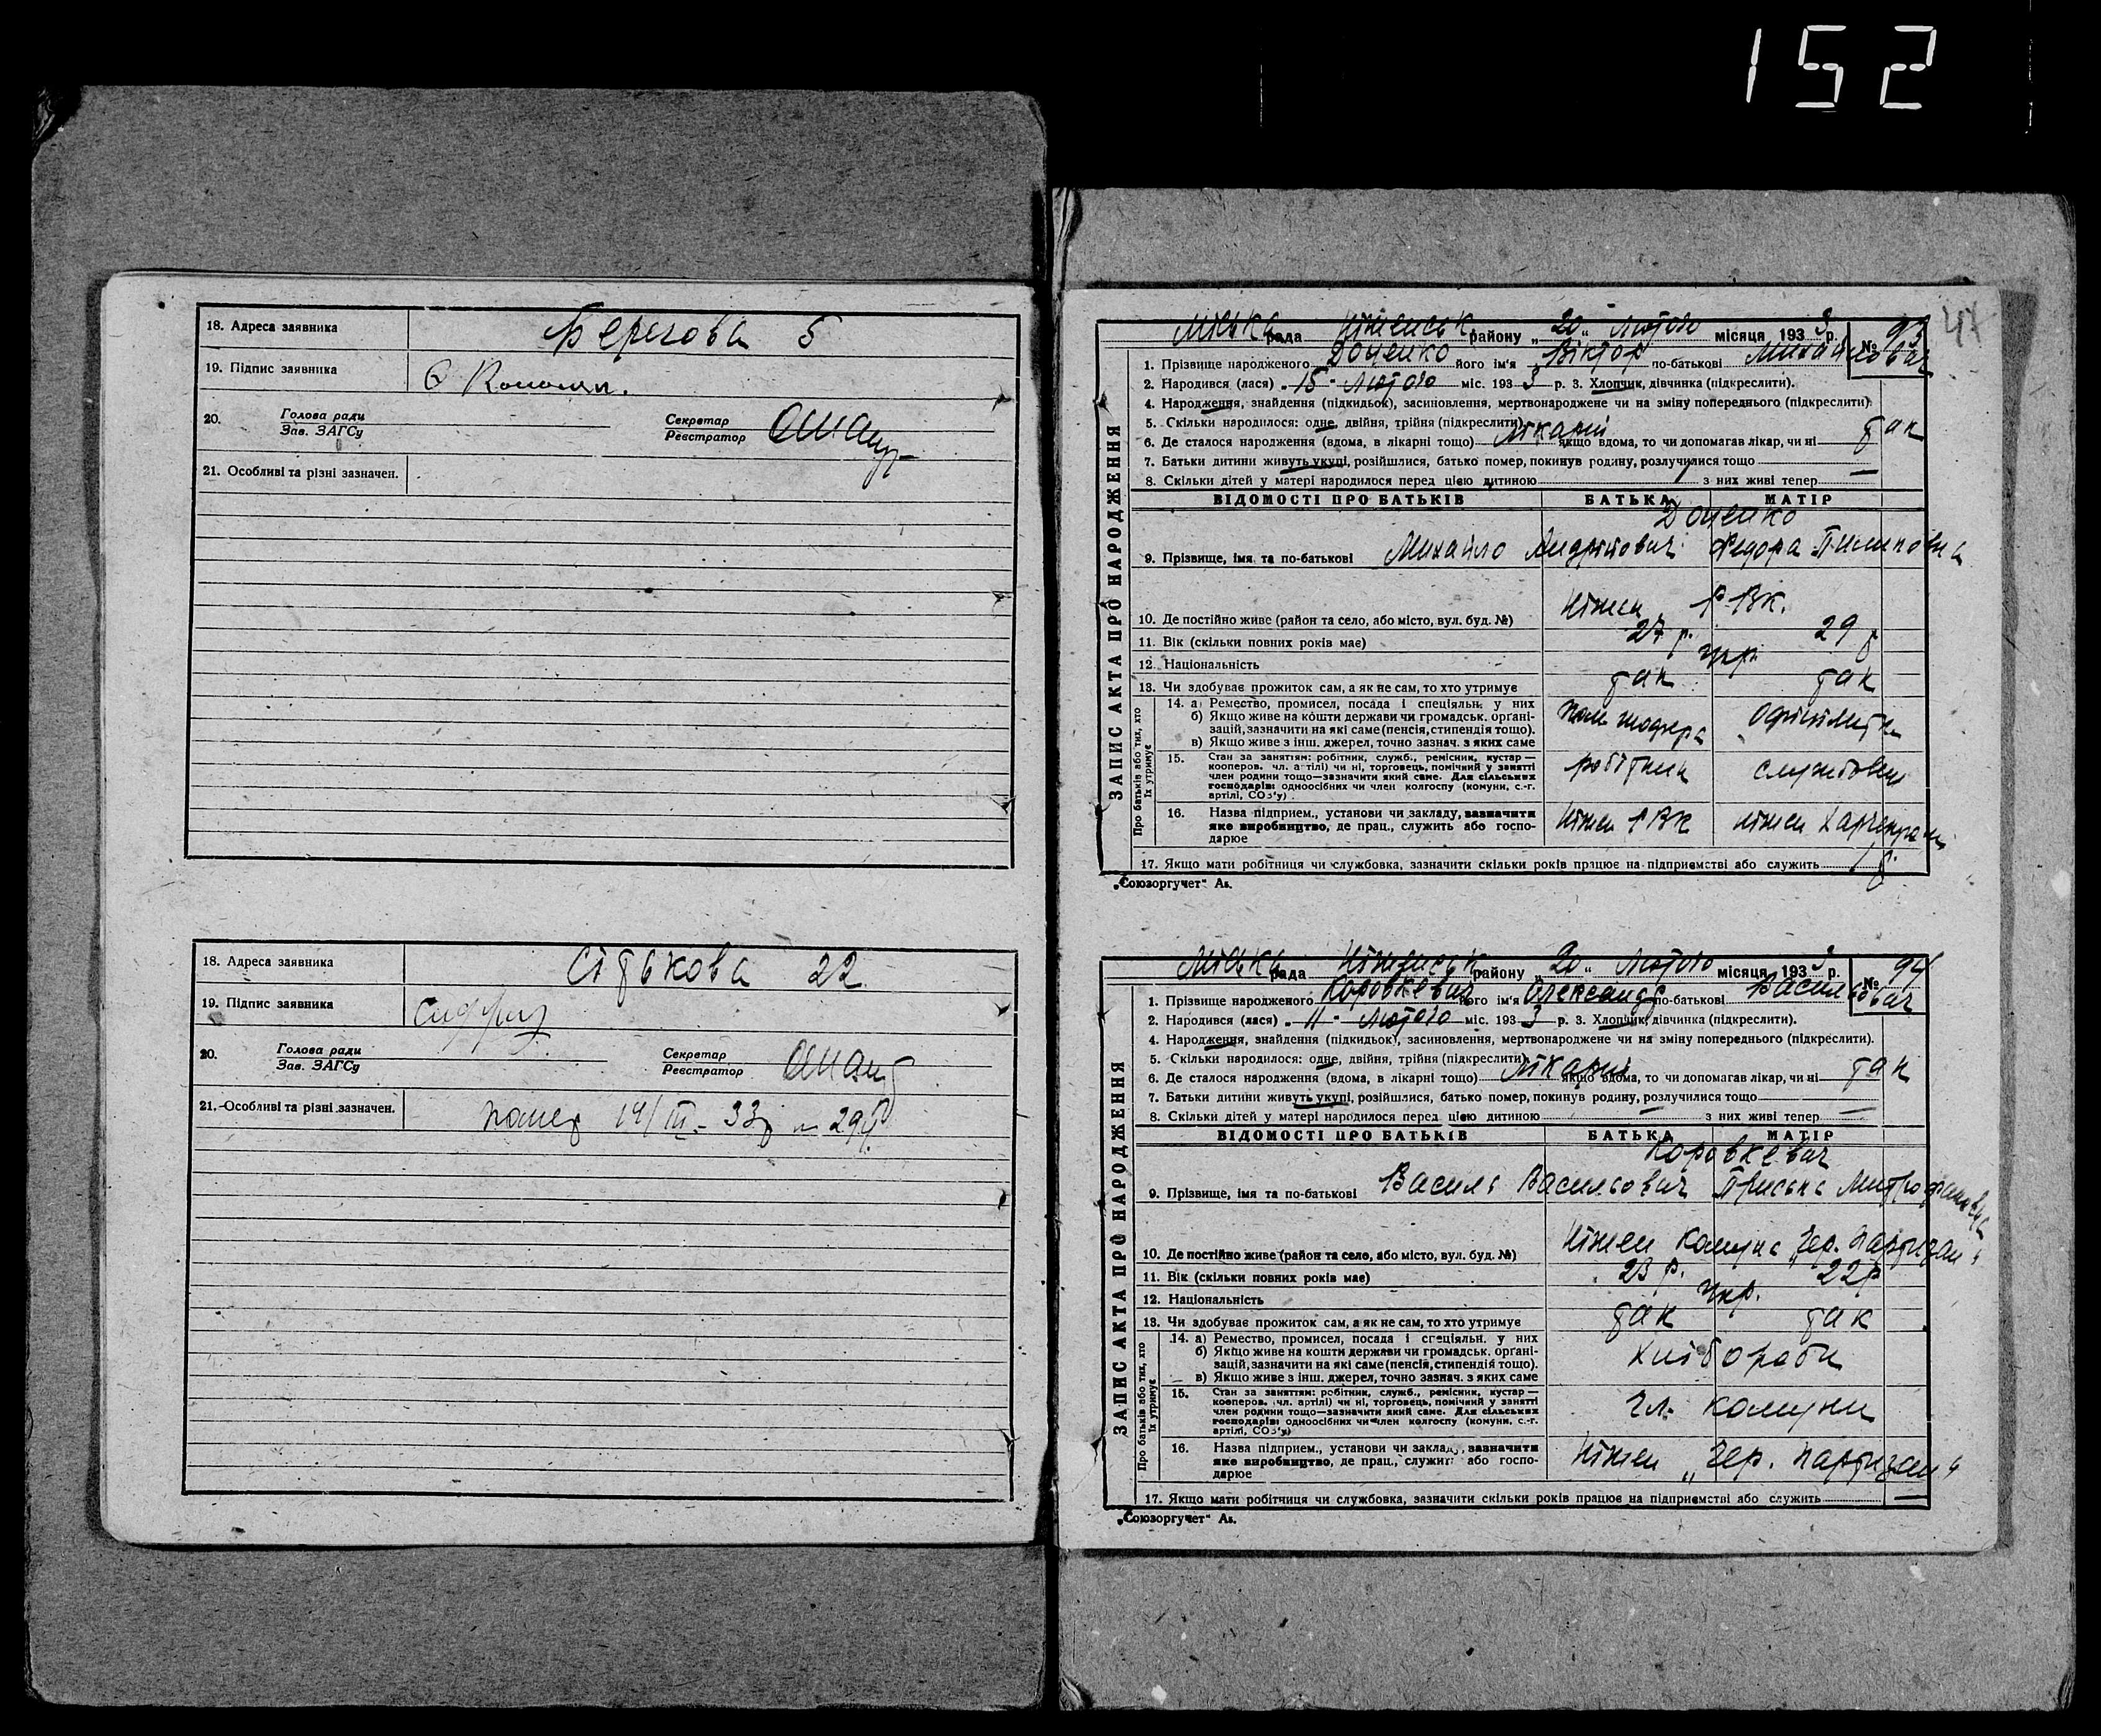 152
18. Адреса заявника Берегова 5
19. Підпис заявника
20. Голова ради Секретар
Зав. ЗАГСу Реєстратор
21. Особливі та різні зазначен.
18. Адреса заявника 22
19. Підпис заявника
20. Голова ради Секретар
Зав. ЗАГСу Реєстратор
21. Особливі та різні зазначен. помер 14/III - 33р
47
ЗАПИС АКТА ПРО НАРОДЖЕННЯ
Міська рада Ніженськ. району „20" Лютого місяця 1933 р. № 93
1. Прізвище народженого Доценко його ім'я Віктор по-батькові Михайлович
2. Народився (лася) 15 Лютого міс. 1933 р. 3. Хлопчик, дівчинка (підкреслити).
4. Народження, знайдення (підкидьок), засиновлення, мертвонароджене чи на зміну попереднього (підкреслити)
5. Скільки народилося: одне, двійня, трійня (підкреслити)
6. Де сталося народження (вдома, в лікарні тощо) Лікарні якщо вдома, то чи допомагав лікар, чи ні так
7. Батьки дитини живуть укупі, розійшлися, батько помер, покинув родину, розлучилися тощо —
8. Скільки дітей у матері народилося перед цією дитиною з них живі тепер
ВІДОМОСТІ ПРО БАТЬКІВ БАТЬКА МАТІР
Доценко
9. Прізвище, імя та по-батькові Михайло Андрійович Федора Пилиповна
10. Де постійно живе (район та село, або місто, вул. буд. №) Ніжен 1 ВК.
11. Вік (скільки повних років має) 27 р. 29 р
12. Національність укр.
13. Чи здобуває прожиток сам, а як не сам, то хто утримує так так
Про батьків або тих, хто їх утримує
14. а) Ремество, промисел, посада і спеціяльн. у них
б) Якщо живе на кошти держави чи громадськ. орґані-
зацій, зазначити на які саме (пенсія, стипендія тощо).
в) Якщо живе з інш. джерел, точно зазнач. з яких саме
пом шофера
15. Стан за заняттям: робітник, служб., ремісник, кустар—
кооперов. чл. артілі) чи ні, торговець, помічний у занятті
член родини тощо—зазначити який саме. Для сільських
господарів: одноосібних чи член колгоспу (комуни, с.-г.
артілі, СОЗ'у).
робітник службовец
16. Назва підприєм., установи чи закладу, зазначити
яке виробництво, де прац., служить або госпо-
дарює
Ніжен 1 ВК Ніжен
17. Якщо мати робітниця чи службовка, зазначити скільки років працює на підприємстві або служить 1 р.
„Союзоргучет" А₅.
ЗАПИС АКТА ПРО НАРОДЖЕННЯ
Міська рада Ніженськ району „20" Лютого місяця 1933 р. № 94
1. Прізвище народженого Коровкевич його ім'я Олександр по-батькові Васильович
2. Народився (лася) 11 Лютого міс. 1933 р. 3. Хлопчик, дівчинка (підкреслити).
4. Народження, знайдення (підкидьок), засиновлення, мертвонароджене чи на зміну попереднього (підкреслити).
5. Скільки народилося: одне, двійня, трійня (підкреслити)
6. Де сталося народження (вдома, в лікарні тощо) Лікарні якщо вдома, то чи допомагав лікар, чи ні так
7. Батьки дитини живуть укупі, розійшлися, батько помер, покинув родину, розлучилися тощо —
8. Скільки дітей у матері народилося перед цією дитиною — з них живі тепер —
ВІДОМОСТІ ПРО БАТЬКІВ БАТЬКА МАТІР
Коровкевич
9. Прізвище, імя та по-батькові Василь Васильович Приська Митрофановна
10. Де постійно живе (район та село, або місто, вул. буд. №) Ніжен Комуна „Чер. Партизан"
11. Вік (скільки повних років має) 23 р. 22 р
12. Національність укр.
13. Чи здобуває прожиток сам, а як не сам, то хто утримує так так
Про батьків або тих, хто їх утримує
14. а) Ремество, промисел, посада і спеціяльн. у них
б) Якщо живе на кошти держави чи громадськ. орґані-
зацій, зазначити на які саме (пенсія, стипендія тощо).
в) Якщо живе з інш. джерел, точно зазнач. з яких саме
Хлібороби
15. Стан за заняттям: робітник, служб., ремісник, кустар—
кооперов. чл. артілі) чи ні, торговець, помічний у занятті
член родини тощо—зазначити який саме. Для сільських
господарів: одноосібних чи член колгоспу (комуни, с.-г.
артілі, СОЗ'у)
чл. комуни
16. Назва підприєм., установи чи закладу, зазначити
яке виробництво, де прац., служить або госпо-
дарює
Ніжен „Чер. партизан"
17. Якщо мати робітниця чи службовка, зазначити скільки років працює на підприємстві або служить —
„Союзоргучет" А₅.